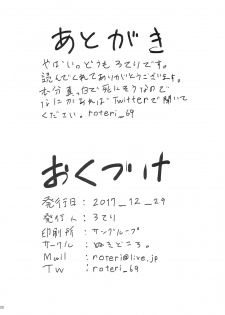 あとがき
やばい。どうもろてりです。
読んでくれてありがとうございます。
本分真っ白で死にそうなので
なにかあればTwitterで聞いて
ください。roteri_69
おくづけ
発行日: 2017_12_29
発行人: ろてり
印刷所: サングループ
サークル: ぬえどころ。
Mail: roteri@live.jp
Tw: roteri_69